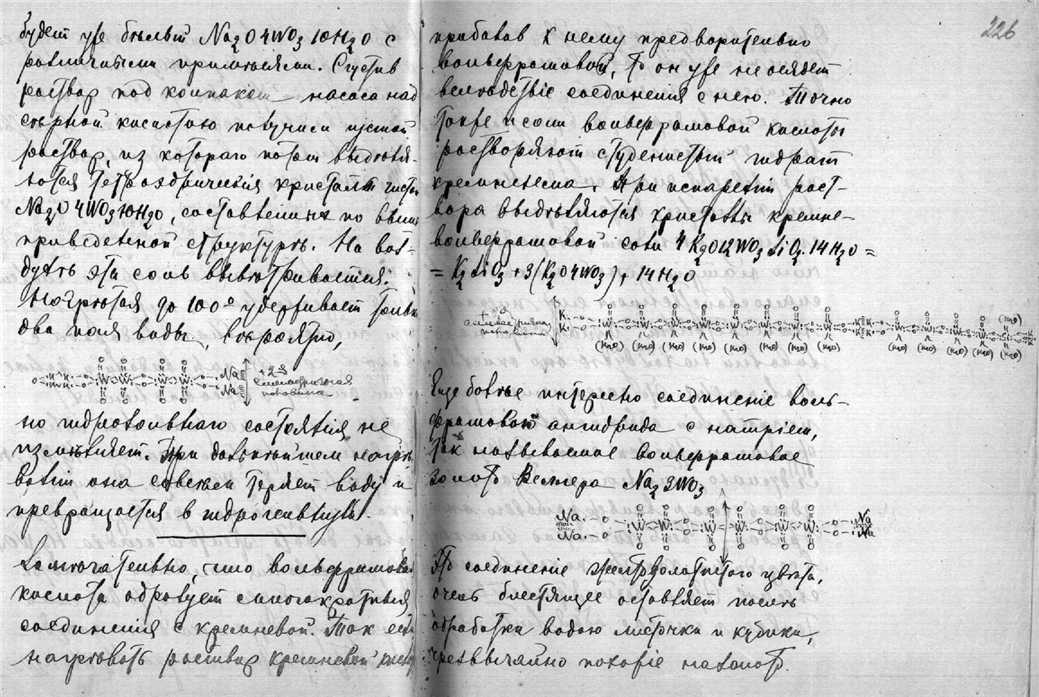 будетъ уже бѣлый Na₂O4WO₃10H₂O с
различными примѣсями. Сгустив
раствор под колпаком насоса над
сѣрной кислотою получим густой
раствор, из котораго потом выдѣля-
ются тетраэдрические кристаллы
Na₂O4WO₃10H₂O, составленные по выше
приведенной структурѣ. На воз-
духѣ эта соль вывѣтривается.
Нагрѣтая до 100° удерживает только
два пая воды,
O W W W W O Na Na +2S
симметричная
половина
но гидрофильнаго состояния не
измѣняет. При дальнѣйшем нагрѣ-
вании она совсѣм теряет воду и
превращается в
Замѣчательно, что вольфрамовая
кислота образует
соединения с кремневой. Так если
нагрѣвать раствор кремневой кислоты
226
прибавив к нему предварительно
вольфрамовой, то он уже не осядет
вслѣдствие соединения с нею. Точно
также и соли вольфрамовой кислоты
растворяют студенистый гидрат
кремнезема. При испарении раст-
вора выдѣляются кристаллы кремне-
вольфрамовой соли 4K₂O12WO₃SiO₂14H₂O =
= K₂SiO₃ + 3(K₂O4WO₃) + 14H₂O
симметричная
половина
(H₂O) (H₂O) (H₂O) (H₂O) (H₂O) (H₂O) (H₂O) (H₂O)
Еще болѣе интересно соединение воль-
фрамоваго ангидрида с натрием,
так называемое вольфрамовое
золото Велера Na₂3WO₃
Na. Na. O O W W W W W W O O Na Na
Это соединение желтозолотистого цвѣта,
очень блестящее оставляет послѣ
обработки водою листочки и кубики,
чрезвычайно похожие на золото.